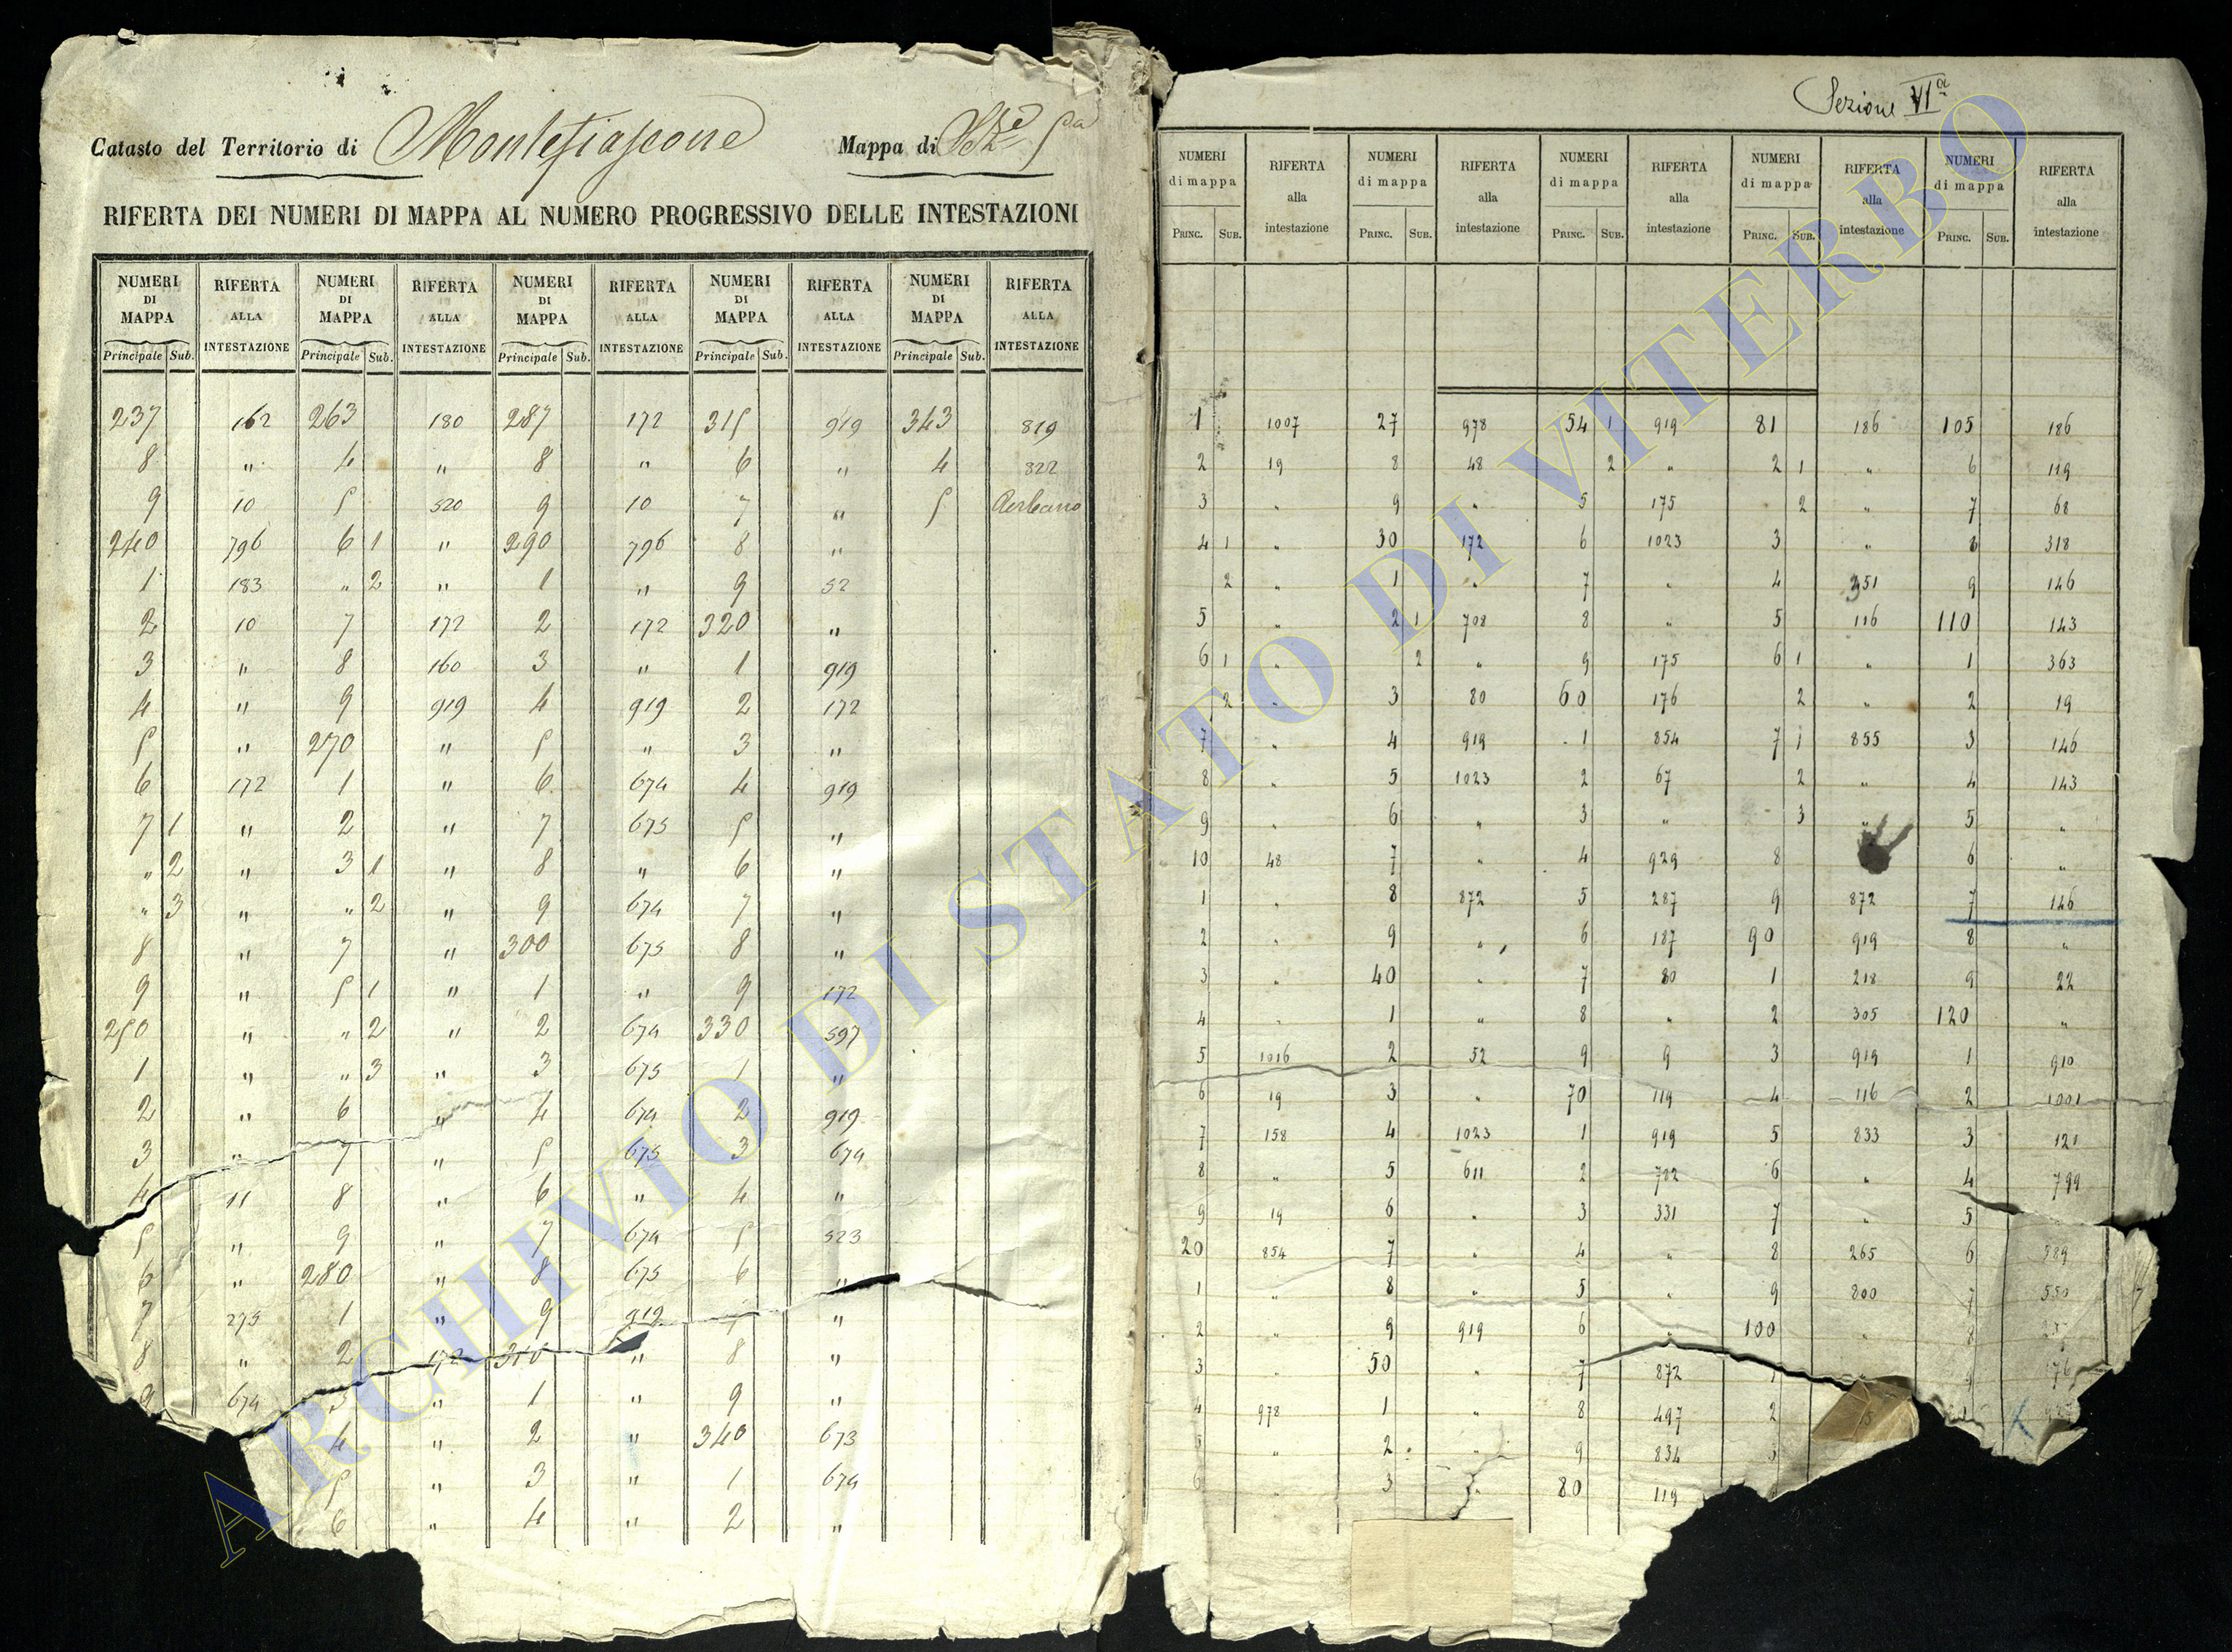 Catasto del Territorio di Montefiascone Mappa di Sez.e 5a
RIFERTA DEI NUMERI DI MAPPA AL NUMERO PROGRESSIVO DELLE INTESTAZIONI
NUMERI DI MAPPA RIFERTA ALLA INTESTAZIONE NUMERI DI MAPPA RIFERTA ALLA INTESTAZIONE NUMERI DI MAPPA RIFERTA ALLA INTESTAZIONE NUMERI DI MAPPA RIFERTA ALLA INTESTAZIONE NUMERI DI MAPPA RIFERTA ALLA INTESTAZIONE
Principale Sub. Principale Sub. Principale Sub. Principale Sub. Principale Sub.
237 162 263 180 287 172 315 919 343 819
8 " 4 " 8 " 6 " 4 322
9 10 5 520 9 10 7 " 5
240 796 6 1 " 290 796 8 "
1 183 " 2 " 1 " 9 52
2 10 7 172 2 172 320 "
3 " 8 160 3 " 1 919
4 " 9 919 4 919 2 172
5 " 270 " 5 " 3 "
6 172 1 " 6 674 4 919
7 1 " 2 " 7 675 5 "
" 2 " 3 1 " 8 " 6 "
" 3 " " 2 " 9 674 7 "
8 " 7 " 300 675 8 "
9 " 5 1 " 1 " 9 172
250 " " 2 " 2 674 330 597
1 " " 3 " 3 675 1 "
2 " 6 " 4 674 2 919
3 " 7 " 5 675 3 674
4 11 8 " 6 " 4 "
5 " 9 " 7 674 5 523
6 " 280 " 8 675 6 "
7 275 1 " 9 919 7 "
8 " 2 172 310 " 8 "
9 674 3 " 1 " 9 "
4 " 2 " 340 673
5 " 3 " 1 674
6 " 4 " 2 "
Sezione VIa
NUMERI di mappa RIFERTA alla intestazione NUMERI di mappa RIFERTA alla intestazione NUMERI di mappa RIFERTA alla intestazione NUMERI di mappa RIFERTA alla intestazione NUMERI di mappa RIFERTA alla intestazione
PRINC. SUB. PRINC. SUB. PRINC. SUB. PRINC. SUB. PRINC. SUB.
1 1007 27 978 54 1 919 81 186 105 186
2 19 8 48 2 " 2 1 " 6 119
3 " 9 " 5 175 2 " 7 68
4 1 " 30 172 6 1023 3 " 8 318
2 " 1 " 7 " 4 351 9 146
5 " 2 1 708 8 " 5 116 110 143
6 1 " 2 " 9 175 6 1 " 1 363
2 " 3 80 60 176 2 " 2 19
7 " 4 919 1 854 7 1 855 3 146
8 " 5 1023 2 67 2 " 4 143
9 " 6 " 3 " 3 " 5 "
10 48 7 " 4 929 8 6 "
1 " 8 872 5 287 9 872 7 146
2 " 9 " 6 187 90 919 8 "
3 " 40 " 7 80 1 218 9 22
4 " 1 " 8 " 2 305 120 "
5 1016 2 52 9 9 3 919 1 910
6 19 3 " 70 119 4 116 2 1001
7 158 4 1023 1 919 5 833 3 121
8 " 5 611 2 782 6 " 4 799
9 19 6 " 3 331 7 " 5
20 854 7 " 4 " 8 265 6 589
1 " 8 " 5 " 9 800 7 550
2 " 9 919 6 " 100 " 8
3 " 50 " 7 872 1
4 978 1 " 8 497 2
5 " 2 " 9 834 3
6 " 3 " 80 119
ARCHIVIO DI STATO DI VITERBO